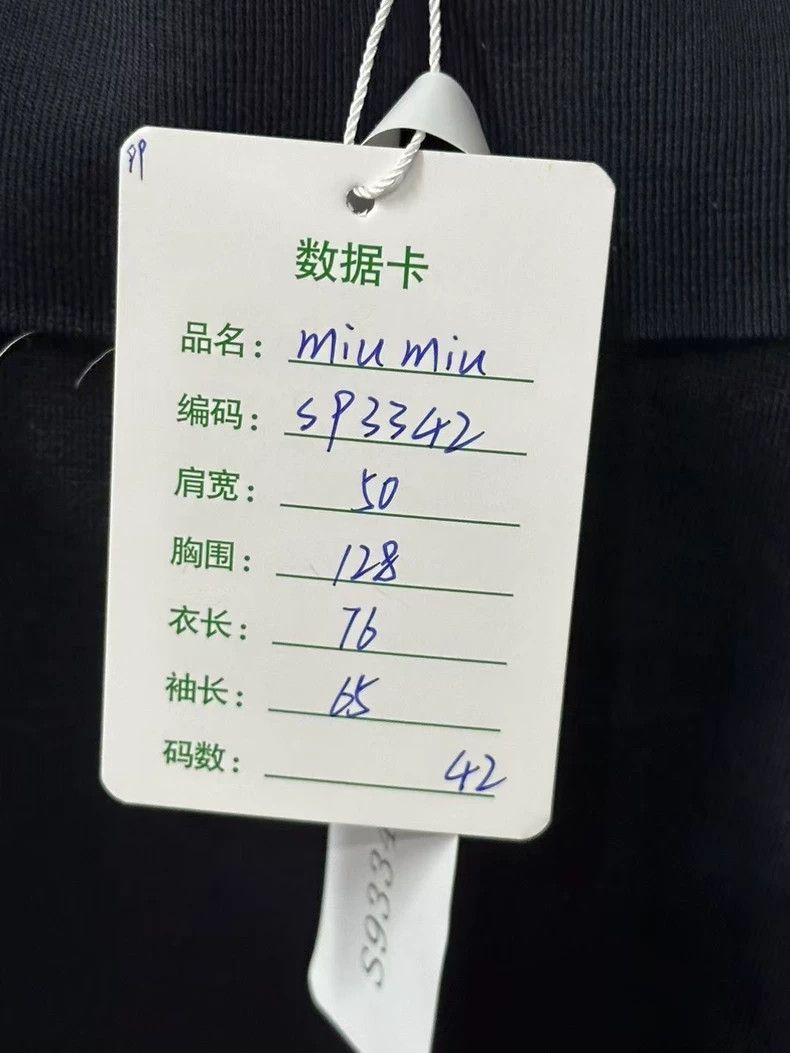 数据卡
品名：miu miu
编码：S93342
肩宽：50
胸围：128
衣长：76
袖长：65
码数：42
S9334